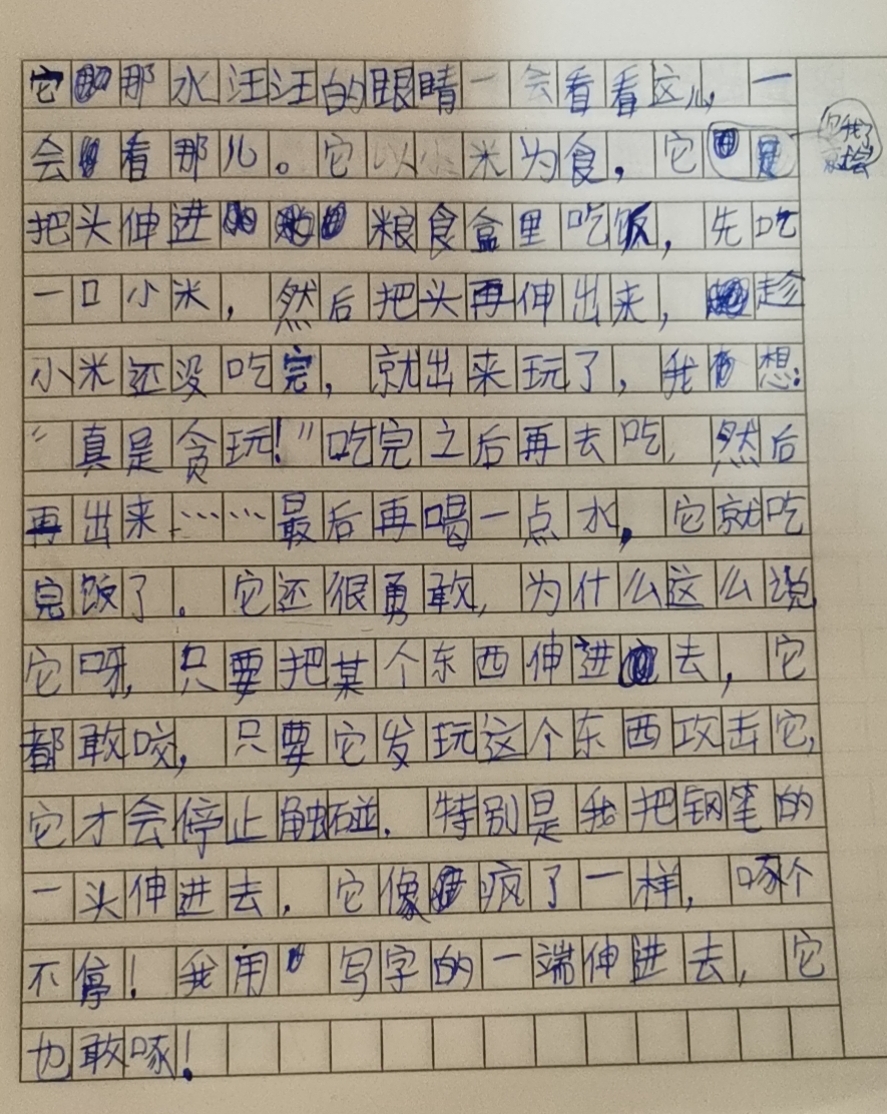 它那水汪汪的眼睛一会看看这儿，一
会看那儿。它以小米为食，它是
把头伸进粮食盒里吃饭，先吃
一口小米，然后把头再伸出来，趁
小米还没吃完，就出来玩了，我想：
“真是贪玩！”吃完之后再去吃，然后
再出来……最后再喝一点水，它就吃
完饭了。它还很勇敢，为什么这么说
它呀，只要把某个东西伸进去，它
都敢咬，只要它发玩这个东西攻击它，
它才会停止触碰．特别是我把钢笔的
一头伸进去，它像疯了一样，啄个
不停！我用写字的一端伸进去，它
也敢啄！